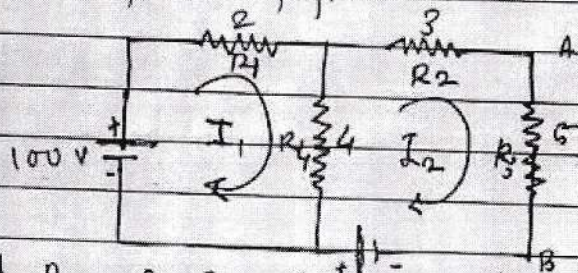 2 3
R1 R2 A
+
100 V I1 R4 4 I2 R3 5
-
+ - B